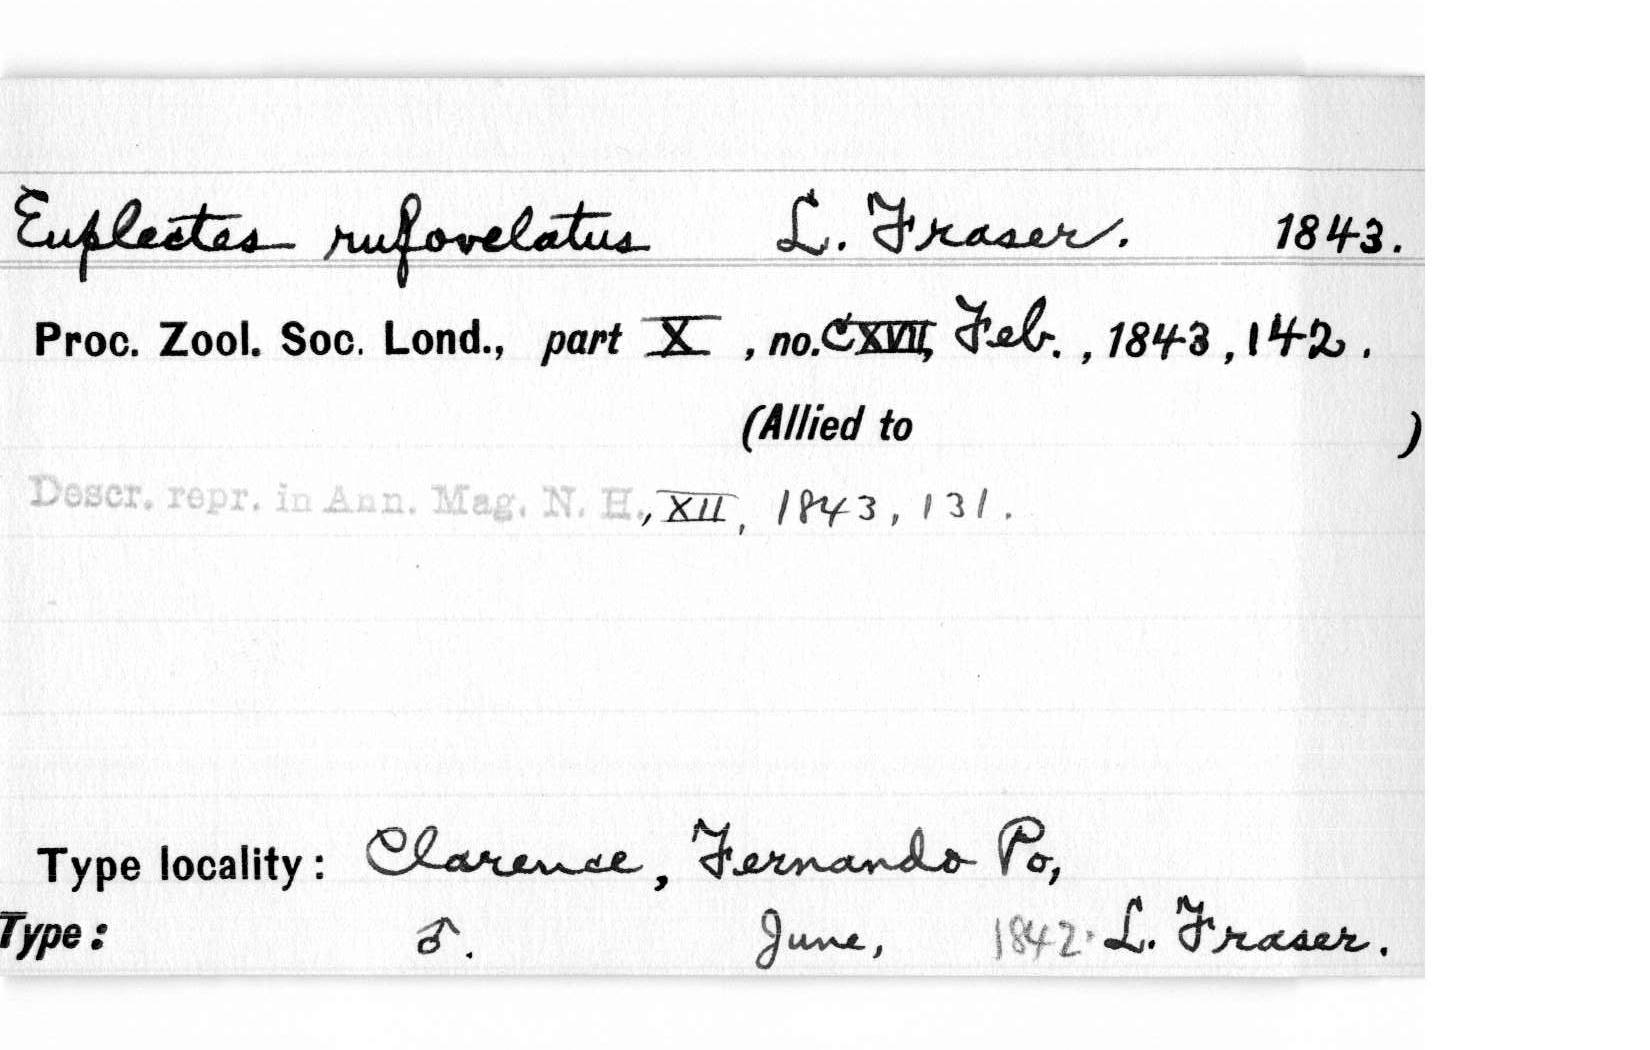 Euplectes rufovelatus L. Fraser. 1843.
Proc. Zool. Soc. Lond., part X, no. CXVII, Feb., 1843, 142.
(Allied to )
Descr. repr. in Ann. Mag. N. H., XII, 1843, 131.
Type locality: Clarence, Fernando Po,
Type: ♂. June, 1842. L. Fraser.